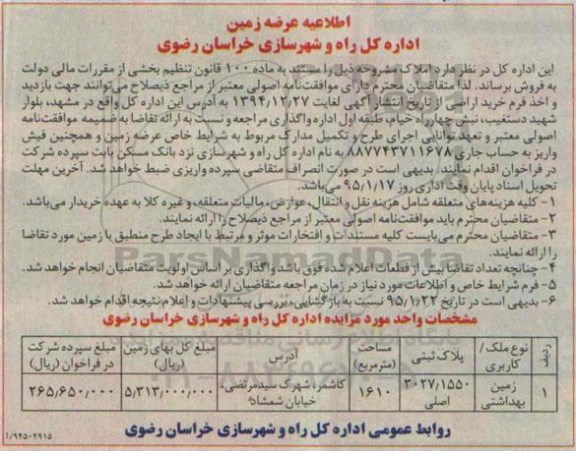 اطلاعیه عرضه زمین
اداره کل راه و شهرسازی خراسان رضوی
این اداره کل در نظر دارد املاک مشروحه ذیل را مستند به ماده ۱۰۰ قانون تنظیم بخشی از مقررات مالی دولت
به فروش برساند. لذا متقاضیان محترم دارای موافقت‌نامه اصولی معتبر از مراجع ذیصلاح می‌توانند جهت بازدید
و اخذ فرم خرید اراضی از تاریخ انتشار آگهی لغایت ۱۳۹۴,۱۲,۲۷ به آدرس این اداره کل واقع در مشهد، بلوار
شهید دستغیب، نبش چهارراه خیام، طبقه اول اداره واگذاری مراجعه و نسبت به ارائه تقاضا به ضمیمه موافقت‌نامه
اصولی معتبر و تعهد توانایی اجرای طرح و تکمیل مدارک مربوط به شرایط خاص عرضه زمین و همچنین فیش
واریز به حساب جاری ۸۸۷۷۴۳۷۱۱۶۷۸ به نام اداره کل راه و شهرسازی نزد بانک مسکن بابت سپرده شرکت
در فراخوان اقدام نمایند. بدیهی است در صورت انصراف متقاضی سپرده واریزی ضبط خواهد شد. آخرین مهلت
تحویل اسناد پایان وقت اداری روز ۹۵/۱/۱۷ می‌باشد.
۱- کلیه هزینه‌های متعلقه شامل هزینه نقل و انتقال، عوارض، مالیات متعلقه، و غیره کلا به عهده خریدار می‌باشد.
۲- متقاضیان محترم باید موافقت‌نامه اصولی معتبر از مراجع ذیصلاح را ارائه نمایند.
۳- متقاضیان محترم می‌بایست کلیه مستندات و افتخارات موثر و مرتبط با ایجاد طرح منطبق با زمین مورد تقاضا
را ارائه نمایند.
۴- چنانچه تعداد تقاضا بیش از قطعات اعلام شده فوق باشد واگذاری بر اساس اولویت متقاضیان انجام خواهد شد.
۵- فرم شرایط خاص و اطلاعات مورد نیاز در زمان مراجعه متقاضیان ارائه خواهد شد.
۶- بدیهی است در تاریخ ۹۵/۱/۲۲ نسبت به بازگشایی، بررسی پیشنهادات و اعلام نتیجه اقدام خواهد شد.
ParsNamadData
مشخصات واحد مورد مزایده اداره کل راه و شهرسازی خراسان رضوی
ردیف نوع ملک/ کاربری پلاک ثبتی مساحت (مترمربع) آدرس مبلغ کل بهای زمین (ریال) مبلغ سپرده شرکت در فراخوان (ریال)
۱ زمین بهداشتی ۳۰۲۷٫۱۵۵۰ اصلی ۱۶۱۰ کاشمر، شهرک سیدمرتضی، خیابان شمشاد ۶ ۵٫۳۱۳٫۰۰۰٫۰۰۰ ۲۶۵٫۶۵۰٫۰۰۰
روابط عمومی اداره کل راه و شهرسازی خراسان رضوی
۱/۹۴۵۰۲۹۱۵